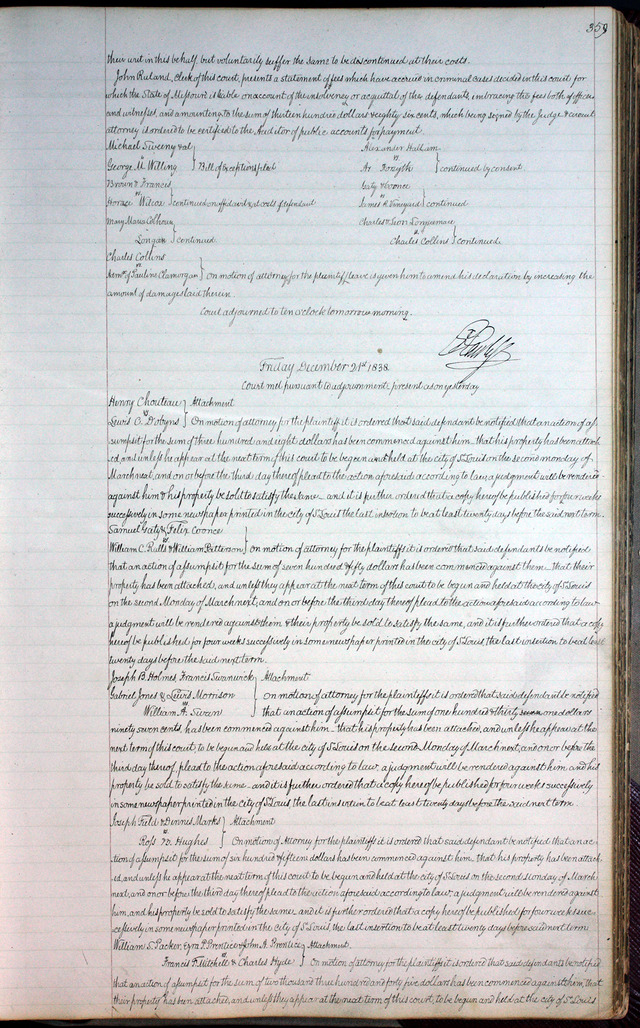 359
their writ in this behalf but voluntarily suffer the same to be discontinued at their costs.
John Ruland, Clerk of this court, presents a statement of fees which have accrued in criminal cases decided in this court for
which the State of Missouri is liable on account of the insolvency or acquittal of the defendants, embracing the fees both of officers
and witnesses, and amounting to the sum of thirteen hundred dollars & eighty six cents, which being signed by the Judge & circuit
attorney is ordered to be certified to the Auditor of public accounts for payment.
Michael Sweeny et al
vs
George M. Willing } Bill of Exceptions filed
Alexander Hallam
vs
Forsyth } continued by consent
Brown & Francis
vs
Horace Wilcox } continued on affidavit & at costs of defendant
Gaty & Coonce
vs
James R. Vineyard } continued
Mary Maria Calhoun
vs
Longan } continued
Charles & Leon
vs
Charles Collins } continued
Charles Collins
vs
Admr. of Pauline Clamorgan } on motion of attorney for the plaintiff leave is given him to amend his declaration by increasing the
amount of damages laid therein.
Court adjourned to ten o'clock tomorrow morning.
Friday December 21st 1838.
Court met pursuant to adjournment, present as on yesterday
Henry Chouteau } Attachment
vs
Lewis C. Dobyns } On motion of attorney for the plaintiff it is ordered that said defendant be notified that an action of as
sumpsit for the sum of three hundred and eight dollars has been commenced against him that his property has been attach
ed, and unless he appear at the next term of this court to be begun and held at the city of St Louis on the second monday of
March next, and on or before the third day thereof plead to the action aforesaid according to law, a judgment will be rendered
against him & his property be sold to satisfy the same and it is further ordered that a copy hereof be published for four weeks
successively in some newspaper printed in the city of St Louis the last insertion to be at least twenty days before the said next term.
Samuel Gaty & Felix Coonce
vs
William C. & William Patterson } on motion of attorney for the plaintiffs it is ordered that said defendants be notified
that an action of assumpsit for the sum of seven hundred & fifty dollars has been commenced against them that their
property has been attached, and unless they appear at the next term of this court to be begun and held at the city of St Louis
on the second Monday of March next, and on or before the third day thereof plead to the action aforesaid according to law
a judgment will be rendered against them & their property be sold to satisfy the same, and it is further ordered that a copy
hereof be published for four weeks successively in some newspaper printed in the city of St Louis, the last insertion to be at least
twenty days before the said next term.
Joseph B. Holmes, Francis Swanwick } Attachment
Gabriel Jones & Lewis Morrison
vs
William A. Swan } on motion of attorney for the plaintiffs it is ordered that said defendant be notified
that an action of assumpsit for the sum of one hundred & thirty one dollars
ninety seven cents, has been commenced against him that his property has been attached, and unless he appear at the
next term of this court, to be begun and held at the city of St Louis on the second Monday of March next, and on or before the
third day thereof, plead to the action aforesaid according to law, a judgment will be rendered against him, and his
property be sold to satisfy the same and it is further ordered that a copy hereof be published for four weeks successively
in some newspaper printed in the city of St Louis the last insertion to be at least twenty days before the said next term.
Joseph Field & Dennis Marks } Attachment
vs
Ross Hughes } On motion of Attorney for the plaintiffs it is ordered that said defendant be notified that an ac-
tion of assumpsit for the sum of six hundred & fifteen dollars has been commenced against him that his property has been attach
ed, and unless he appear at the next term of this court to be begun and held at the city of St Louis on the second Monday of March
next, and on or before the third day thereof plead to the action aforesaid according to law, a judgment will be rendered against
him, and his property be sold to satisfy the same and it is further ordered that a copy hereof be published for four weeks suc-
cessively in some newspaper printed in the city of St Louis, the last insertion to be at least twenty days before said next term.
William S. Packer, Ezra P. Prentice & John H. Prentice } Attachment.
vs
Francis F. Mitchell & Charles Hyde } On motion of attorney for the plaintiffs it is ordered that said defendants be notified
that an action of assumpsit for the sum of two thousand three hundred and forty five dollars has been commenced against them, that
their property has been attached, and unless they appear at the next term of this court, to be begun and held at the city of St Louis